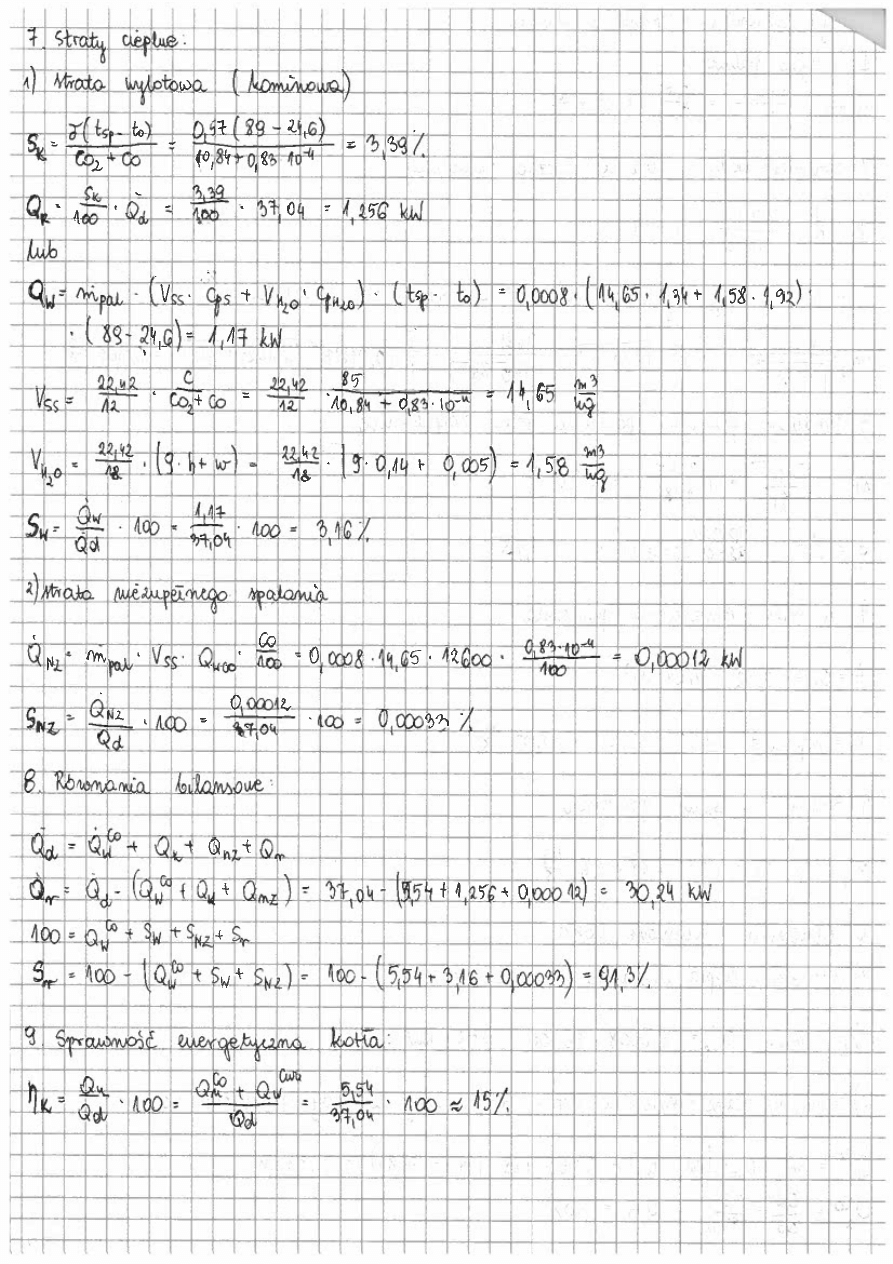 7. Straty cieplne:
1) strata wylotowa (kominowa)
S_K = γ(t_sp - t_o) / (CO_2 + CO) = 0,57(89 - 24,6) / (10,84 + 0,83 · 10^-4) = 3,39 %
Q_K = S_K/100 · Q̇_d = 3,39/100 · 37,04 = 1,256 kW
lub
Q_W = ṁ_pal · (V_SS · C_PS + V_H_2O · C_PH_2O) · (t_sp - t_o) = 0,0008 · (14,65 · 1,34 + 1,58 · 1,92) ·
· (89 - 24,6) = 1,17 kW
V_SS = 22,42/12 · C/(CO_2 + CO) = 22,42/12 · 85/(10,84 + 0,83 · 10^-4) = 14,65 m^3/kg
V_H_2O = 22,42/18 · (9 · h + w) = 22,42/18 · (9 · 0,14 + 0,005) = 1,58 m^3/kg
S_W = Q̇_W/Q̇_d · 100 = 1,17/37,04 · 100 = 3,16 %
2) strata niezupełnego spalania
Q̇_NZ = ṁ_pal · V_SS · Q_WCO · CO/100 = 0,0008 · 14,65 · 12600 · 0,83 · 10^-4/100 = 0,00012 kW
S_NZ = Q̇_NZ/Q_d · 100 = 0,00012/37,04 · 100 = 0,00033 %
8. Równania bilansowe:
Q̇_d = Q̇_W^CO + Q_K + Q_nz + Q_r
Q̇_r = Q̇_d - (Q_W^CO + Q_K + Q_nz) = 37,04 - (5,54 + 1,256 + 0,00012) = 30,24 kW
100 = Q_W^CO + S_W + S_NZ + S_r
S_r = 100 - (Q_W^CO + S_W + S_NZ) = 100 - (5,54 + 3,16 + 0,00033) = 91,3 %
9. Sprawność energetyczna kotła:
η_K = Q_u/Q_d · 100 = (Q_u^CO + Q_u^CWU)/Q_d = 5,54/37,04 · 100 ≈ 15 %